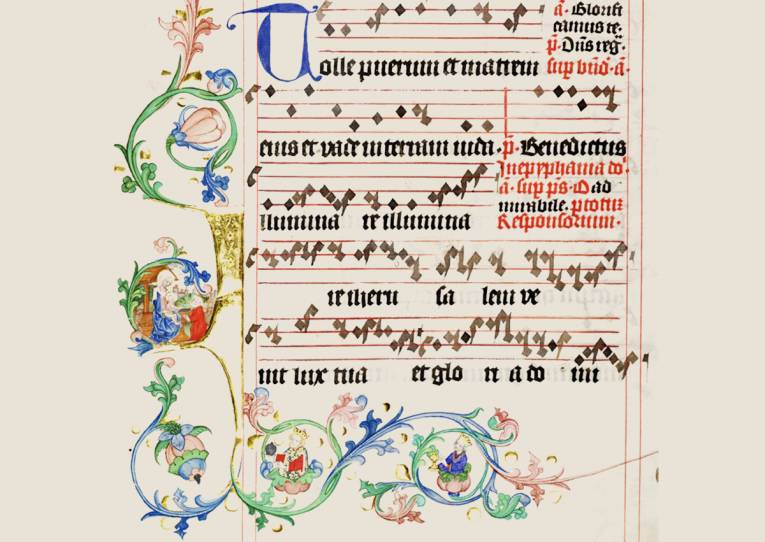 ā. Glorifi
camus te.
p̄. Dūs reḡ.
Tolle puerum et matrem sup bn̄d. ā.
eius et vade in terram iuda. p̄. Benedictus
In epyphania do
ā. sup ps. O ad
mirabile. ptotū
Responsorium.
Illumina re illumina
re iheru sa lem ve
nit lux tua et glo ri a do mi